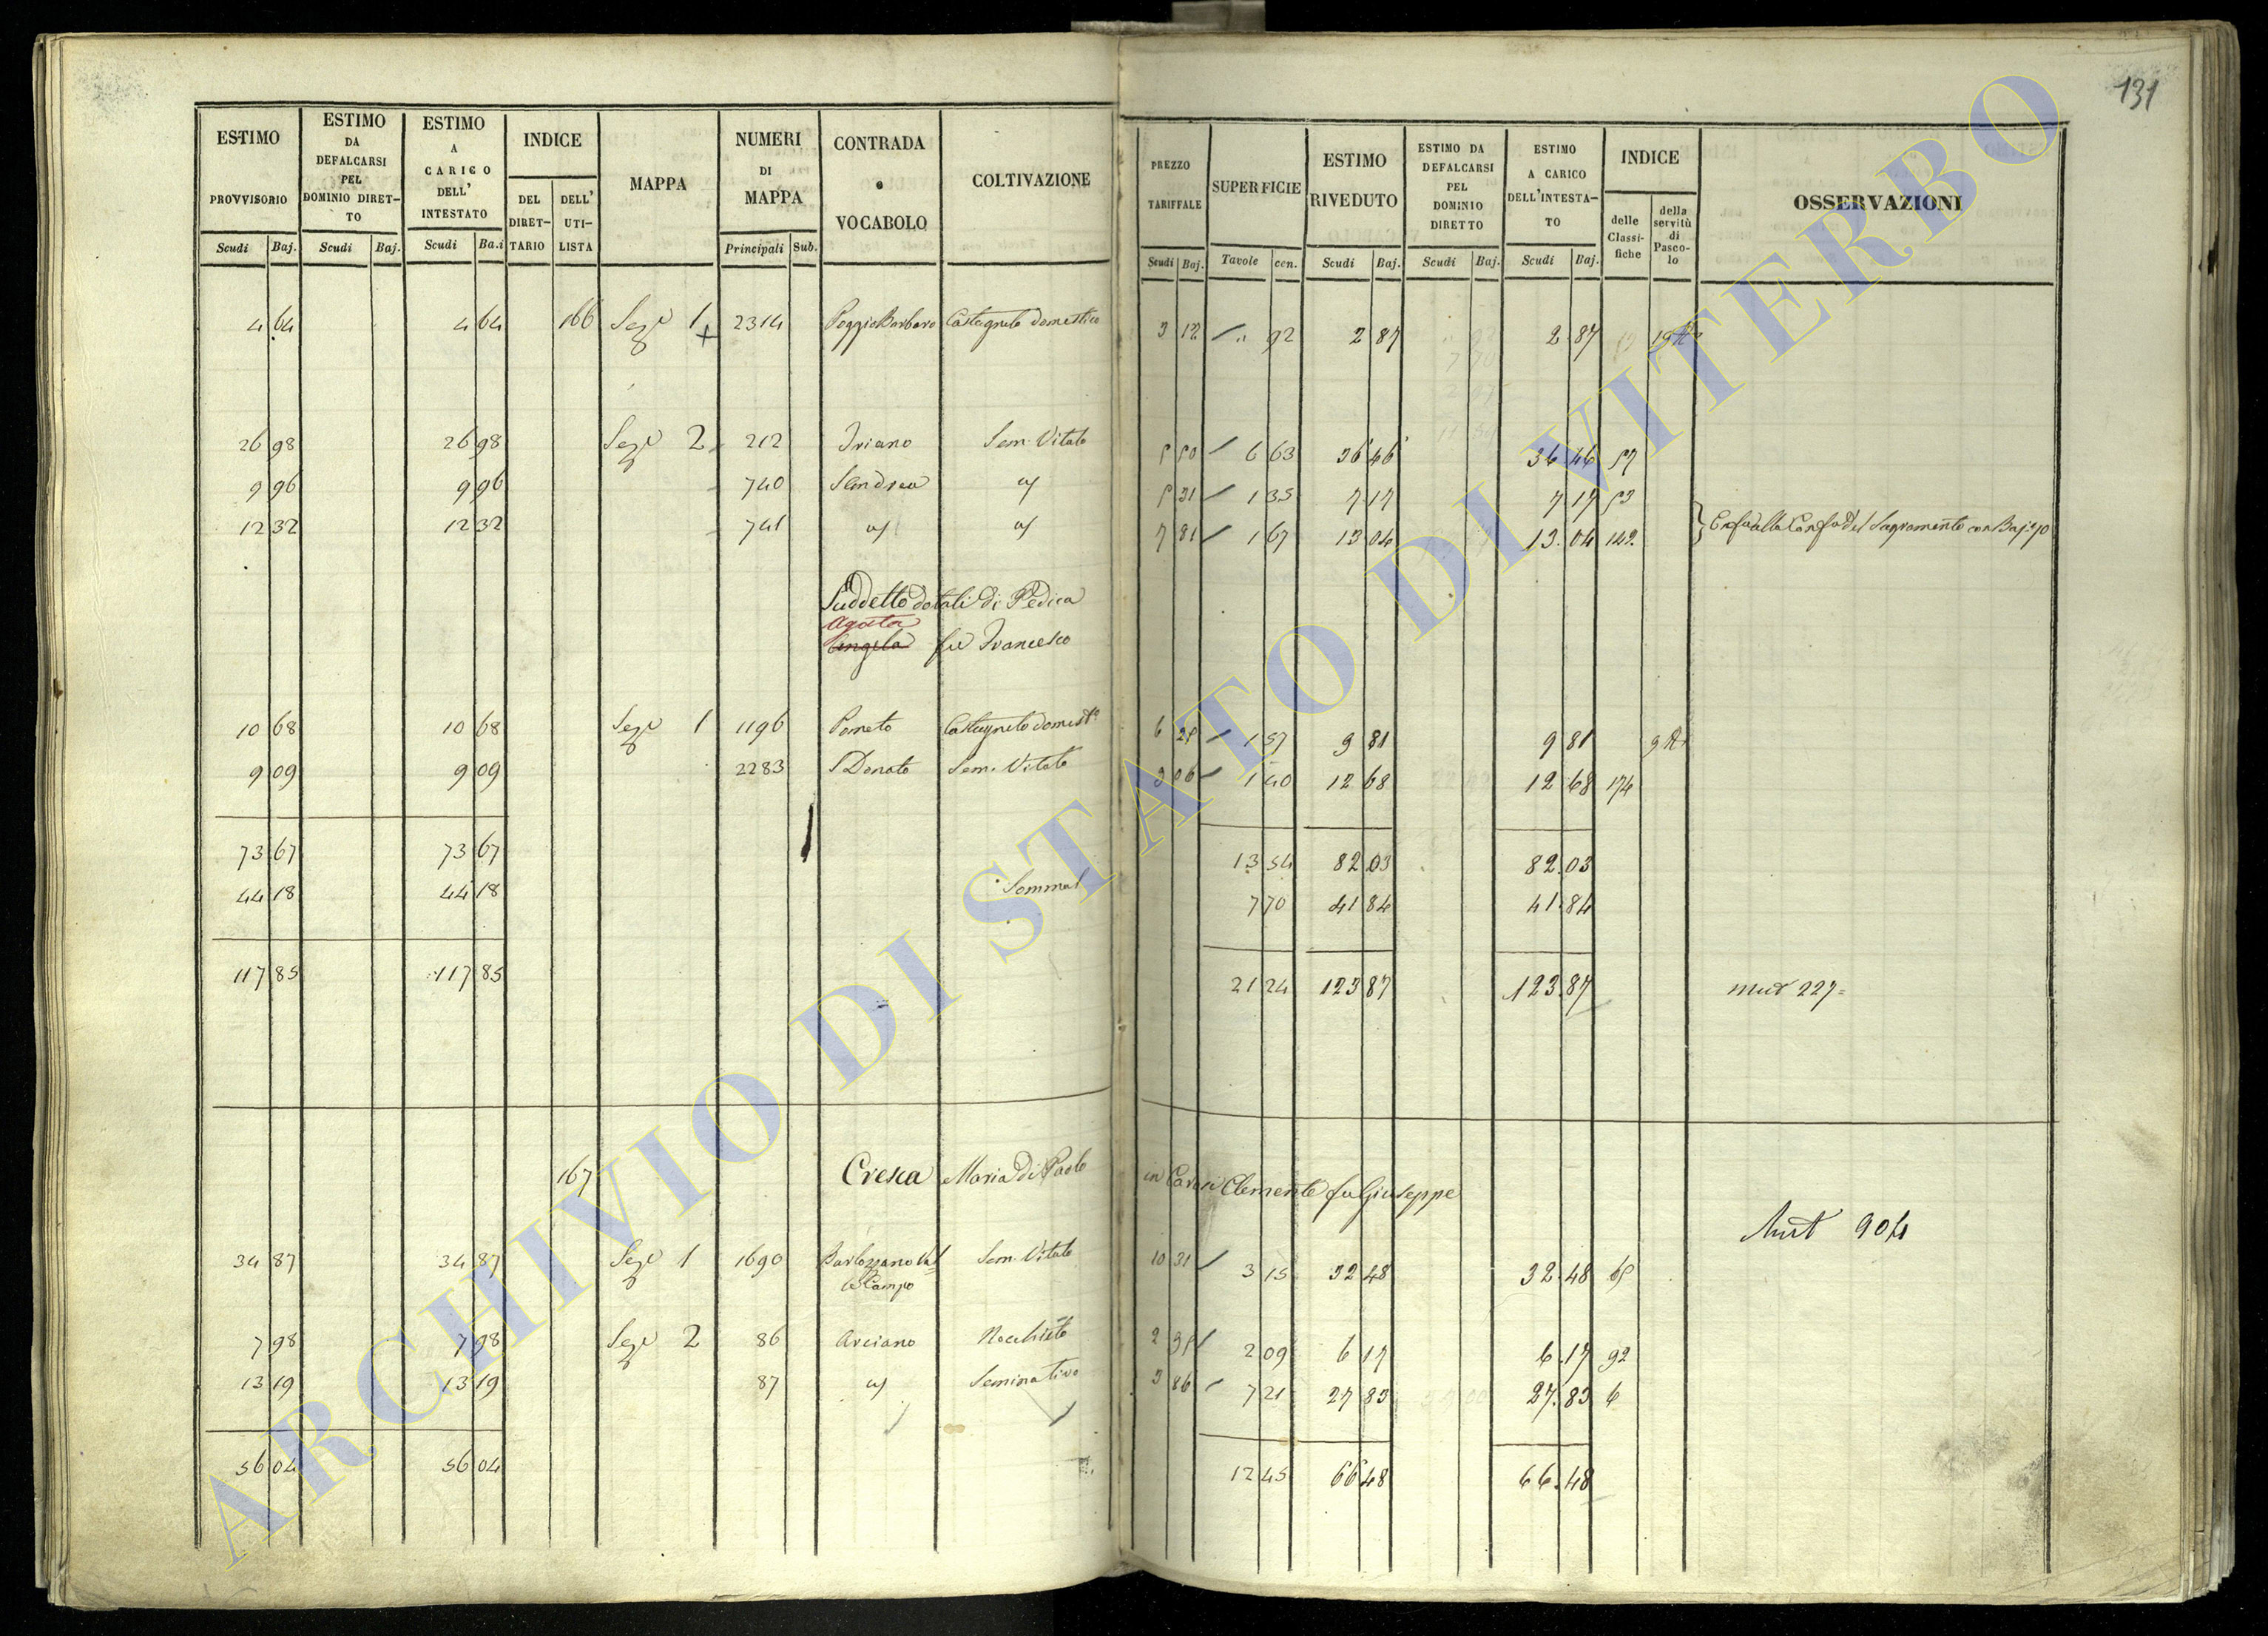 131
ESTIMO PROVVISORIO Scudi Baj.
ESTIMO DA DEFALCARSI PEL DOMINIO DIRET-TO Scudi Baj.
ESTIMO A CARICO DELL' INTESTATO Scudi Ba.i
INDICE DEL DIRET-TARIO DELL' UTI-LISTA
MAPPA
NUMERI DI MAPPA Principali Sub.
CONTRADA o VOCABOLO
COLTIVAZIONE
PREZZO TARIFFALE Scudi Baj.
SUPERFICIE Tavole cen.
ESTIMO RIVEDUTO Scudi Baj.
ESTIMO DA DEFALCARSI PEL DOMINIO DIRETTO Scudi Baj.
ESTIMO A CARICO DELL'INTESTA-TO Scudi Baj.
INDICE delle Classi-fiche della servitù di Pasco-lo
OSSERVAZIONI
4 64 4 64 166 Sez.e 1 2314 Poggio Barbaro Castagneto domestico 3 12 " 92 2 87 2 87
26 98 26 98 Sez.e 2 212 Triano Sem. Vitato 5 50 6 63 36 46 36 46 57
9 96 9 96 740 S Andrea 5 31 1 35 7 17 7 17 53
12 32 12 32 741 7 81 1 67 13 04 13 04 142
Suddetto dotali di Pedica
Agata
Angela fu Francesco
10 68 10 68 Sez.e 1 1196 Pometo Castagneto domest.o 6 25 1 57 9 81 9 81
9 09 9 09 2283 S Donato Sem. Vitato 9 06 1 40 12 68 12 68 174
73 67 73 67 13 54 82 03 82 03
44 18 44 18 7 70 41 84 41 84
117 85 117 85 21 24 123 87 123 87 227
167 Cresca Maria di Paolo in Clemente fu Giuseppe
904
34 87 34 87 Sez.e 1 1690 Campo Sem. Vitato 10 31 3 15 32 48 32 48 65
7 98 7 98 Sez.e 2 86 Arciano Nocchieto 2 95 2 09 6 17 6 17 92
13 19 13 19 87 Seminativo 3 86 7 21 27 83 27 83 6
56 04 56 04 12 45 66 48 66 48
ARCHIVIO DI STATO DI VITERBO